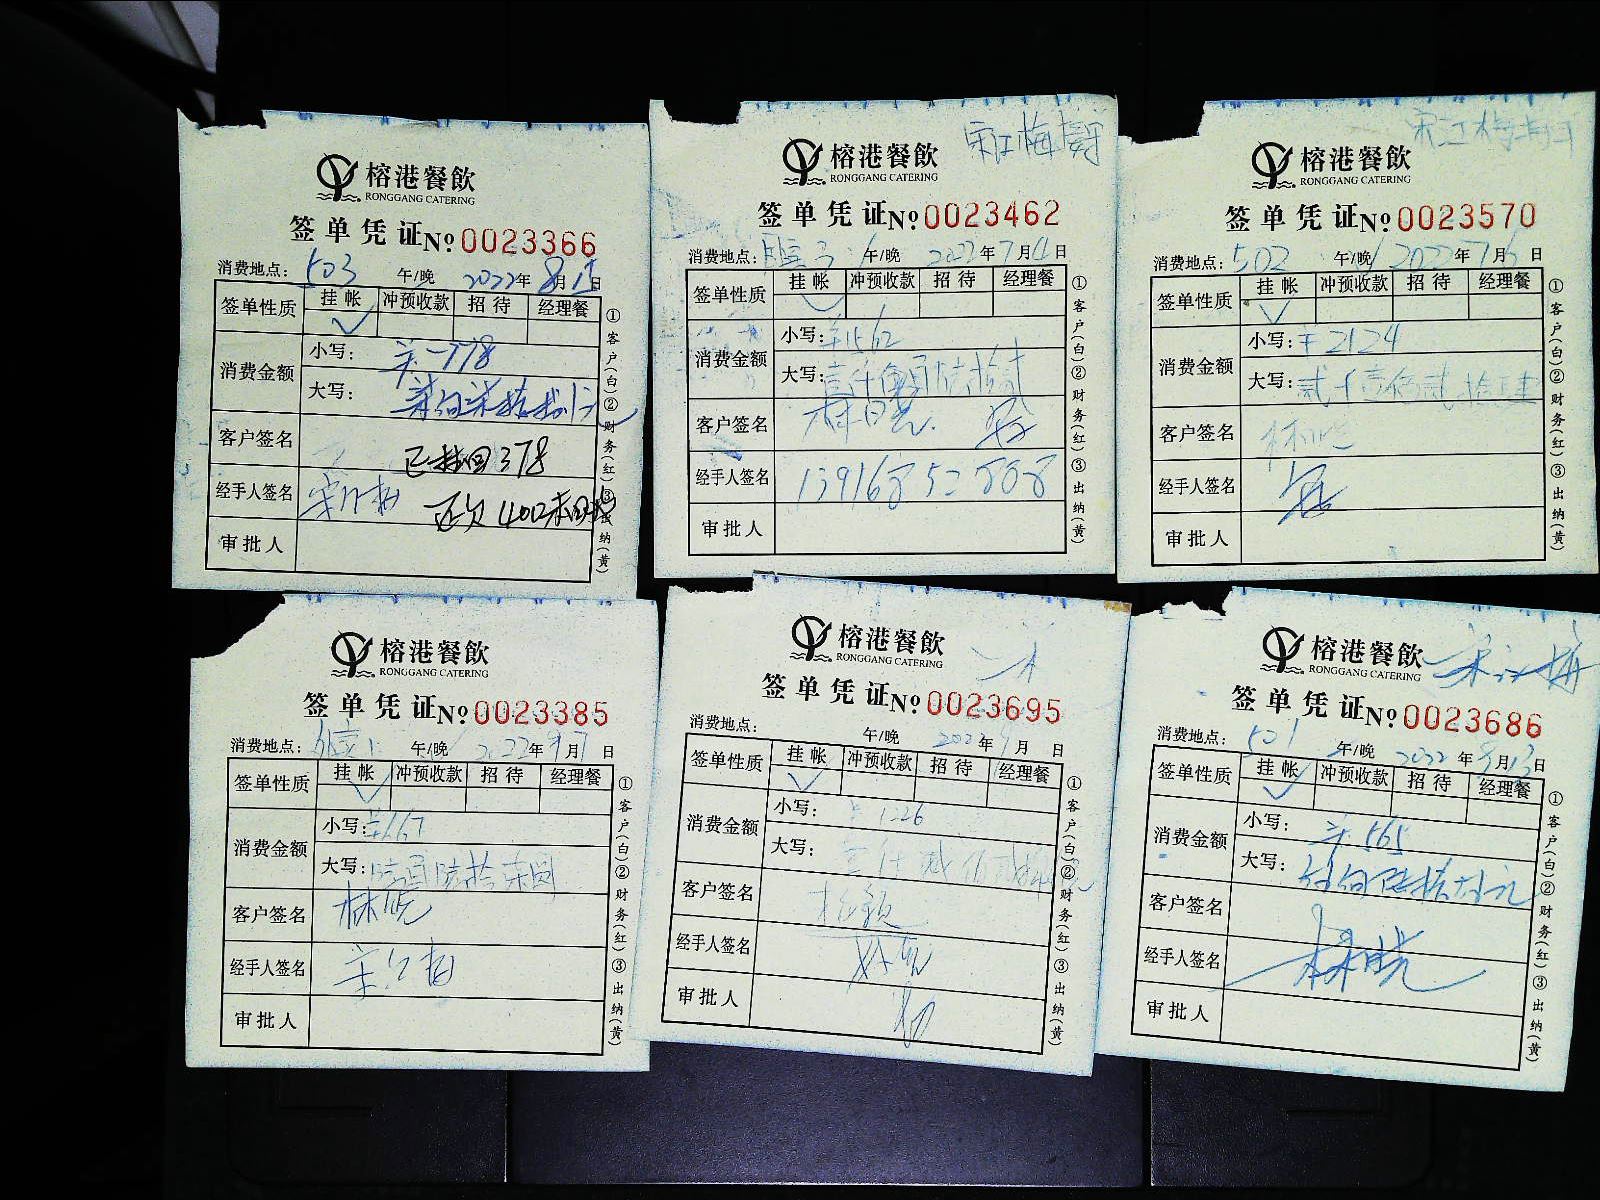 榕港餐飲
RONGGANG CATERING
签单凭证 №0023366
消费地点: 503 午/晚 2022年8月15日
签单性质 挂帐 冲预收款 招待 经理餐
消费金额 小写: 778
大写: 柒佰柒拾捌元
客户签名 已找回378
经手人签名 宋江梅 还欠400未
审批人
①客户(白)②财务(红)③出纳(黄)
宋江梅
榕港餐飲
RONGGANG CATERING
签单凭证 №0023462
消费地点: 午/晚 2022年7月4日
签单性质 挂帐 冲预收款 招待 经理餐
消费金额 小写: 1562
大写: 壹仟伍佰陆拾贰
客户签名 林晓
经手人签名 13916852808
审批人
①客户(白)②财务(红)③出纳(黄)
宋江梅
榕港餐飲
RONGGANG CATERING
签单凭证 №0023570
消费地点: 502 午/晚 2022年7月 日
签单性质 挂帐 冲预收款 招待 经理餐
消费金额 小写: 2124
大写: 贰千壹佰贰拾
客户签名 林晓
经手人签名
审批人
①客户(白)②财务(红)③出纳(黄)
榕港餐飲
RONGGANG CATERING
签单凭证 №0023385
消费地点: 午/晚 2022年9月7日
签单性质 挂帐 冲预收款 招待 经理餐
消费金额 小写: 667
大写: 陆百陆拾柒圆
客户签名 林晓
经手人签名 宋江梅
审批人
①客户(白)②财务(红)③出纳(黄)
榕港餐飲
RONGGANG CATERING
签单凭证 №0023695
消费地点: 午/晚 2022年9月 日
签单性质 挂帐 冲预收款 招待 经理餐
消费金额 小写: 1226
大写: 壹仟贰佰贰拾
客户签名
经手人签名
审批人
①客户(白)②财务(红)③出纳(黄)
榕港餐飲 宋江梅
RONGGANG CATERING
签单凭证 №0023686
消费地点: 501 午/晚 2022年9月13日
签单性质 挂帐 冲预收款 招待 经理餐
消费金额 小写: 565
大写: 伍佰陆拾伍元
客户签名
经手人签名 林晓
审批人
①客户(白)②财务(红)③出纳(黄)